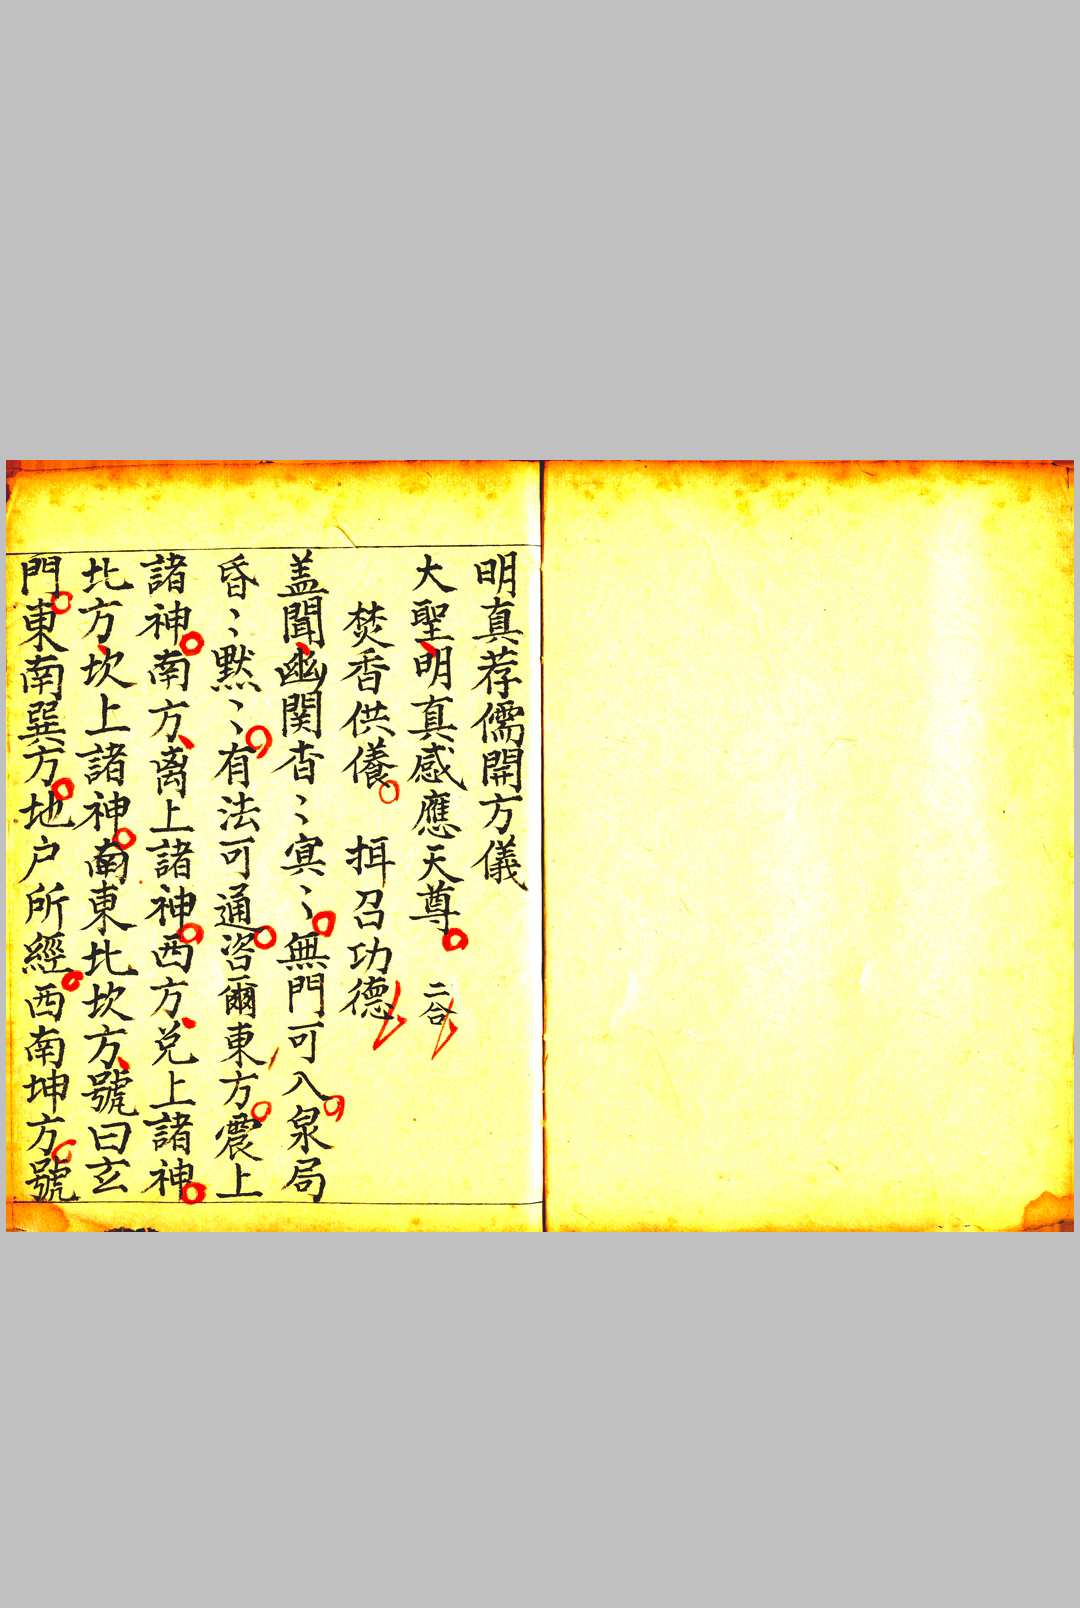 明真荐儒開方儀
大聖明真感應天尊 二合
焚香供養 揖召功德
盖聞幽関杳〻冥〻無門可入泉局
昏〻默〻有法可通咨爾東方震上
諸神南方离上諸神西方兌上諸神
北方坎上諸神南東北坎方號曰玄
門東南巽方地户所經西南坤方號